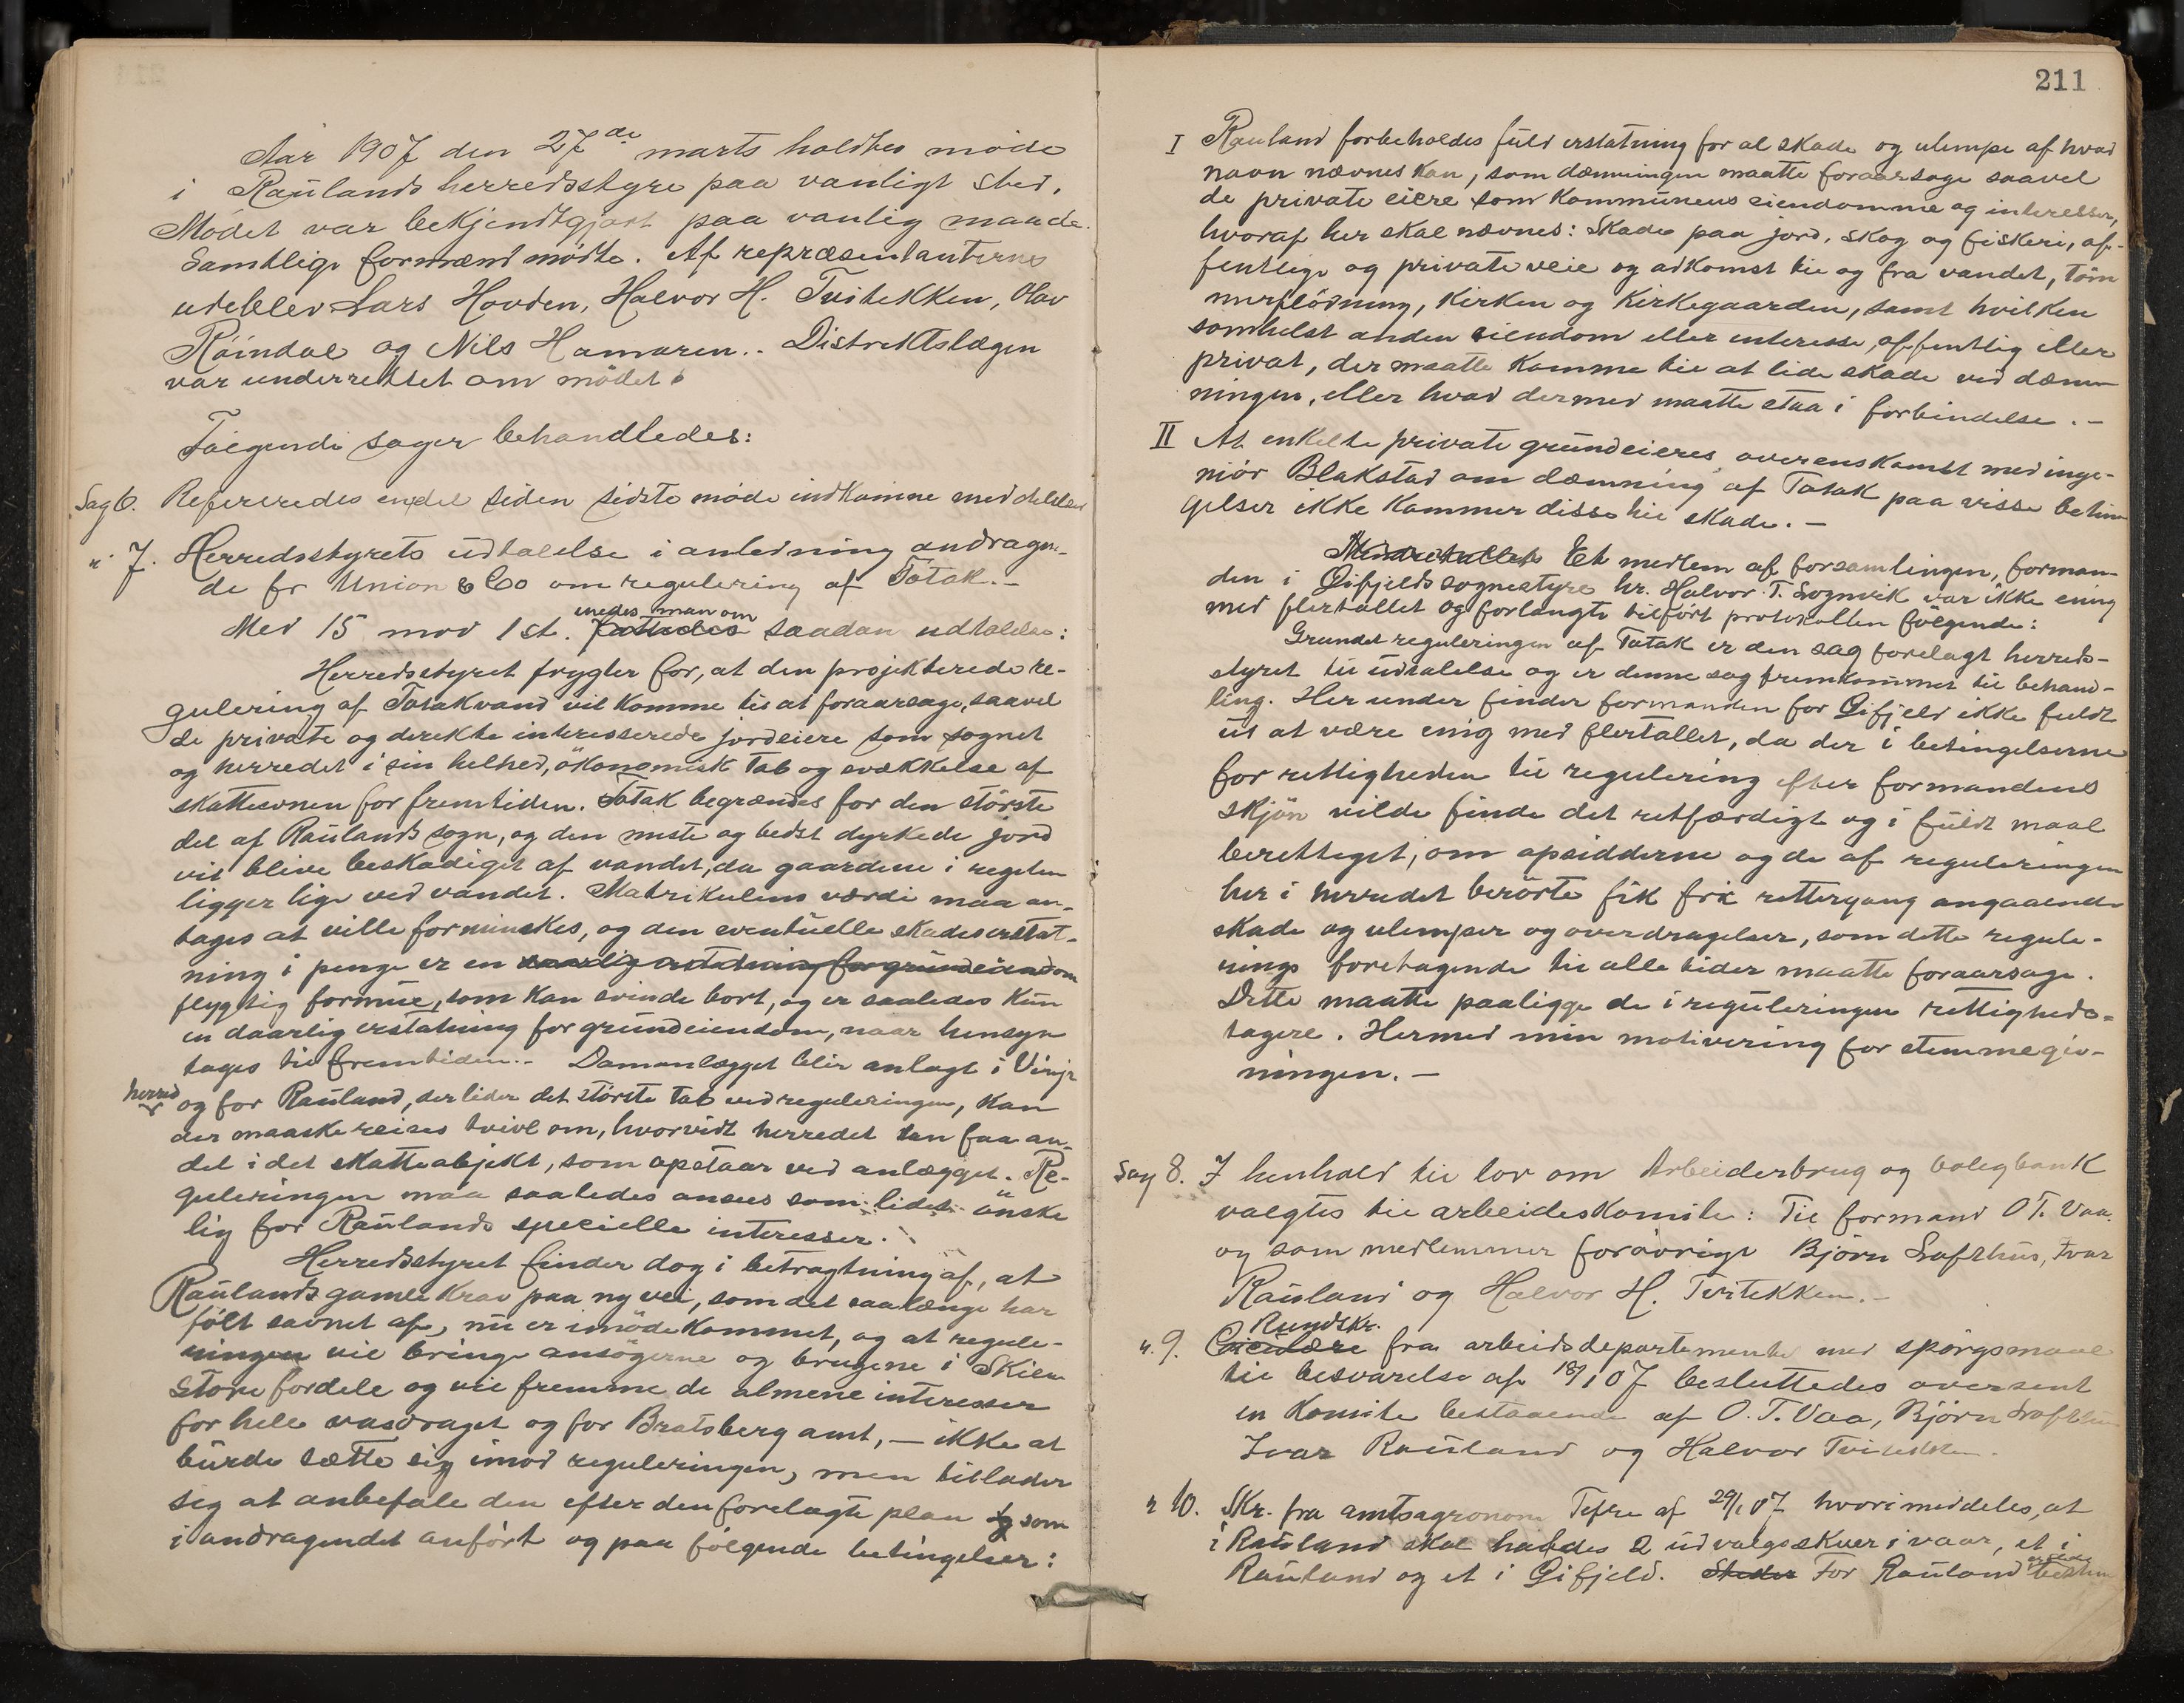 Aar 1907 den 27de marts holdtes møde
i Raulands herredsstyre paa vanligt sted.
Mødet var bekjendtgjort paa vanlig maade.
Samtlige formænd mødte. Af repræsentanterne
udeblev Lars Hovden, Halvor H. Tvitekken, Olav
Röindal og Nils Hamaren.- Distriktslægen
var underrettet om mødet.
Følgende sager behandledes:
Sag 6. Refereredes endel siden sidste møde indkomne meddelelser
" 7. Herredsstyrets udtalelse i anledning andragen-
de fr Union & Co om regulering af Totak.-
enedes man om
Med 15 mod 1 st. fattedes saadan udtalelse:
Herredsstyret frygter for, at den projekterede re-
gulering af Totakvand vil komme til at foraarsage, saavel
de private og direkte interesserede jordeiere som sognet
og herredet i sin helhed, økonomisk tab og svækkelse af
skatteevnen for fremtiden. Totak begrændes for den største
del af Raulands sogn, og den meste og bedst dyrkede jord
vil blive beskadiget af vandet, da gaardene i regelen
ligger lige ved vandet. Matrikulens værdi maa an-
tages at ville forminskes, og den eventuelle skadeserstat-
ning i penge er en daarlig erstatning for grundeiendom
flygtig formue, som kan svinde bort, og er saaledes kun
en daarlig erstatning for grundeiendom, naar hensyn
tages til fremtiden.- Damanlægget blir anlagt i Vinje
herred og for Rauland, der lider det største tab ved reguleringen, kan
der maaske reises tvivl om, hvorvidt herredet kan faa an-
del i det skatteobjekt, som opstaar ved anlægget. Re-
guleringen maa saaledes ansees som lidet ønske
lig for Raulands specielle interesser.
Herredsstyret finder dog i betragtning af, at
Raulands gamle krav paa ny vei, som det saalænge har
følt savnet af, nu er imødekommet, og at regule-
ringen vil bringe ansøgerne og brugene i Skien
store fordele og vil fremme de almene interesser
for hele vasdraget og for Bratsberg amt, — ikke at
burde sætte sig imod reguleringen, men tillader
sig at anbefale den efter den forelagte plan og som
i andragendet anført og paa følgende betingelser:
211
I Rauland forbeholdes fuld erstatning for al skade og ulempe af hvad
navn nævnes kan, som dæmningen maatte foraarsage saavel
de private eiere som kommunens eiendomme og interesser,
hvoraf her skal nævnes: Skade paa jord, skog og fiskeri, of-
fentlige og private veie og adkomst til og fra vandet, töm
merflödning, kirken og kirkegaarden, samt hvilken
somhelst anden eiendom eller interesse, offentlig eller
privat, der maatte komme til at lide skade ved dæm
ningen, eller hvad dermed maatte staa i forbindelse.-
II At enkelte private grundeieres overenskomst med inge-
niör Blakstad om dæmning af Totak paa visse betin
gelser ikke kommer disse til skade.-
Mindretallet Et medlem af forsamlingen, forman-
den i Øifjelds sognestyre hr. Halvor T. Sognvik var ikke enig
med flertallet og forlangte tilført protokollen følgende:
Grundet reguleringen af Totak er den sag forelagt herreds-
styret til udtalelse og er denne sag fremkommet til behand-
ling. Her under finder formanden for Øifjeld ikke fuldt
ut at være enig med flertallet, da der i betingelserne
for rettigheden til regulering efter formandens
skjøn vilde finde det retfærdigt og i fuldt maal
berettiget, om opsidderne og de af reguleringen
her i herredet berörte fik fri rettergang angaaende
skade og ulemper og overdragelser, som dette regule-
rings foretagende til alle tider maatte foraarsage.
Dette maatte paaligge de i reguleringen rettigheds-
tagere. Hermed min motivering for stemmegiv-
ningen.—
Sag 8. I henhold til lov om Arbeiderbrug og boligbank
valgtes til arbeideskomite: Til formand O T. Vaa.
og som medlemmer forøvrigt Björn Lofthus, Ivar
Rauland og Halvor H. Tvitekken.-
Rundskr.
". 9. Circulære fra arbeidsdepartementet med spørgsmaal
til besvarelse af 18/1 07 besluttedes oversent
en komite bestaaende af O. T. Vaa, Björn Lofthus
Ivar Rauland og Halvor Tvitekken.
" 10. Skr. fra amtsagronom Tefre af 29/1 07 hvori meddeles, at
i Rauland skal holdes 2 udvalgsskuer i vaar, et i
Rauland og et i Øifjeld. Steder For Rauland